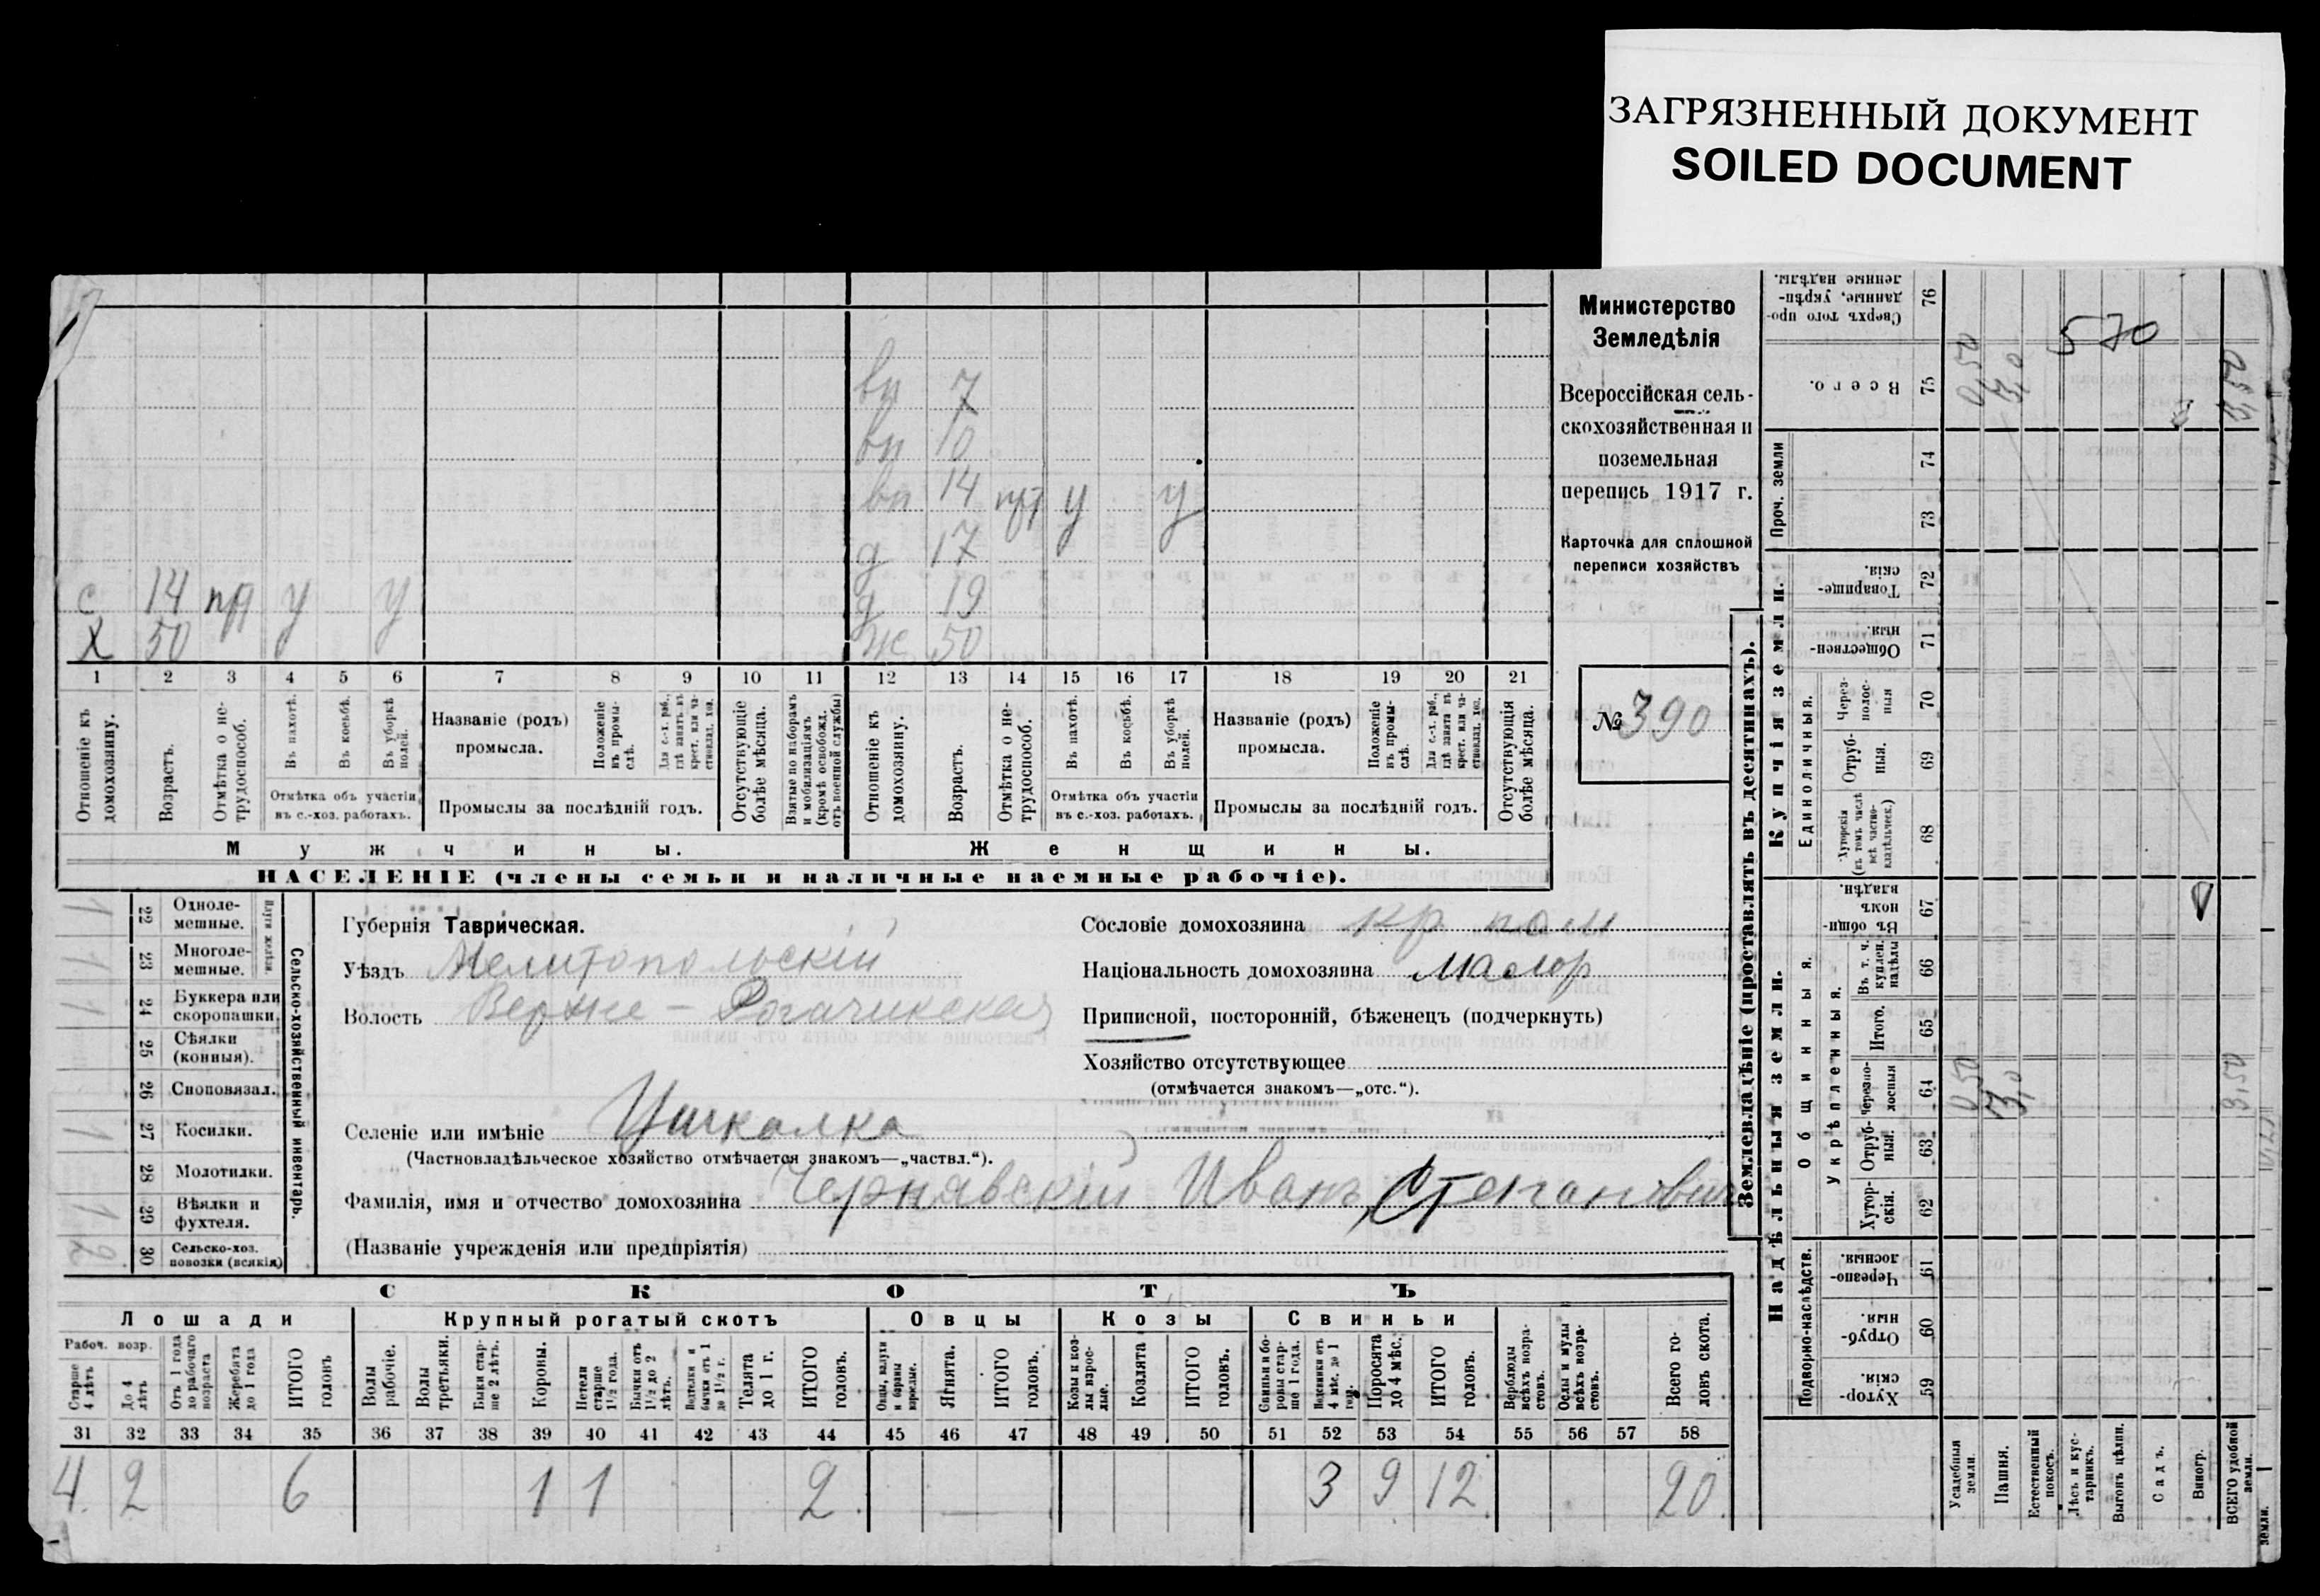 ЗАГРЯЗНЕННЫЙ ДОКУМЕНТ
SOILED DOCUMENT
Министерство
Земледѣлія
Всероссійская сель-
скохозяйственная и
поземельная
перепись 1917 г.
Карточка для сплошной
переписи хозяйствъ
№ 390
вп 7
вп 10
вп 14 нт у у
д 17
с 14 у у д 19
х 50 ж 50
1 2 3 4 5 6 7 8 9 10 11 12 13 14 15 16 17 18 19 20 21
Отношеніе къ домохозяину.
Возрастъ.
Отмѣтка о не-трудоспособ.
Въ пахотѣ.
Въ косьбѣ.
Въ уборкѣ полей.
Отмѣтка объ участіи
въ с.-хоз. работахъ.
Названіе (родъ)
промысла.
Положеніе въ промы-слѣ.
Для с.-х. раб., гдѣ занятъ въ крест. или ча-стновлад. хоз.
Промыслы за послѣдній годъ.
Отсутствующіе болѣе мѣсяца.
Взятые по наборамъ и мобилизаціямъ (кромѣ освобожд. отъ военной службы)
Отношеніе къ домохозяину.
Возрастъ.
Отмѣтка о не-трудоспособ.
Въ пахотѣ.
Въ косьбѣ.
Въ уборкѣ полей.
Отмѣтка объ участіи
въ с.-хоз. работахъ.
Названіе (родъ)
промысла.
Положеніе въ промы-слѣ.
Для с.-х. раб., гдѣ занятъ въ крест. или ча-стновлад. хоз.
Промыслы за послѣдній годъ.
Отсутствующія болѣе мѣсяца.
Мужчины. Женщины.
НАСЕЛЕНІЕ (члены семьи и наличные наемные рабочіе).
Сельско-хозяйственный инвентарь.
Плуги
1 22 Одноле-мешные.
1 23 Многоле-мешные.
1 24 Буккера или скоропашки.
25 Сѣялки (конныя).
26 Сноповязал.
1 27 Косилки.
28 Молотилки.
1 29 Вѣялки и фухтеля.
2 30 Сельско-хоз. повозки (всякія)
Губернія Таврическая.
Уѣздъ Мелитопольскій
Волость Верхне-Рогачикская
Сословіе домохозяина кр
Національность домохозяина малор
Приписной, посторонній, бѣженецъ (подчеркнуть)
Хозяйство отсутствующее
(отмѣчается знакомъ—„отс.“).
Селеніе или имѣніе Ушкалка
(Частновладѣльческое хозяйство отмѣчается знакомъ—„частвл.“).
Фамилія, имя и отчество домохозяина Чернявскій Иванъ Степановичъ
(Названіе учрежденія или предпріятія)
СКОТЪ
Лошади Крупный рогатый скотъ Овцы Козы Свиньи
Рабоч. возр.
Старше 4 лѣтъ
До 4 лѣтъ
Отъ 1 года до рабочаго возраста
Жеребята до 1 года
ИТОГО головъ
Волы рабочіе.
Волы третьяки.
Быки стар-ше 2 лѣтъ.
Коровы.
Нетели старше 1½ года.
Бычки отъ 1½ до 2 лѣтъ.
бычки отъ 1 до 1½ г.
Телята до 1 г.
ИТОГО головъ.
Овцы, валухи и бараны взрослые.
Ягнята.
ИТОГО головъ.
Козы и коз-лы взрос-лые.
Козлята
ИТОГО головъ.
Свиньи и бо-ровы стар-ше 1 года.
Подсвинки отъ 4 мѣс. до 1 года.
Поросята до 4 мѣс.
ИТОГО головъ.
Верблюды всѣхъ возра-стовъ.
Ослы и мулы всѣхъ возра-стовъ.
Всего го-ловъ скота.
31 32 33 34 35 36 37 38 39 40 41 42 43 44 45 46 47 48 49 50 51 52 53 54 55 56 57 58
4 2 6 1 1 2 3 9 12 20
Землевладѣніе (проставлять въ десятинахъ).
Надѣльныя земли. Купчія земли.
Сверхъ того про-данные, укрѣп-ленные надѣлы. 76
Всего. 75 0,50 3,0 3,50
570
Проч. земли 74
73
Товарище-скія. 72
Обществен-ныя. 71
Единоличныя.
Через-полос-ныя 70
Отруб-ныя. 69
Хуторскія (въ томъ числѣ всѣ частно-владѣльческ.) 68
Общинныя.
Въ общин-номъ владѣн. 67
Укрѣпленныя.
Въ т. ч. куплен. надѣлы 66
Итого. 65
Черезпо-лосныя 64 0,50 3,0 3,50
Отруб-ныя. 63
Хутор-скія. 62
Подворно-наслѣдств.
Черезпо-лосныя. 61
Отруб-ныя. 60
Хутор-скія. 59
Усадебныя земли.
Пашня.
Естественный покосъ.
Лѣсъ и кус-тарникъ.
Выгонъ цѣлин.
Садъ.
Виногр.
ВСЕГО удобной земли.
земли.